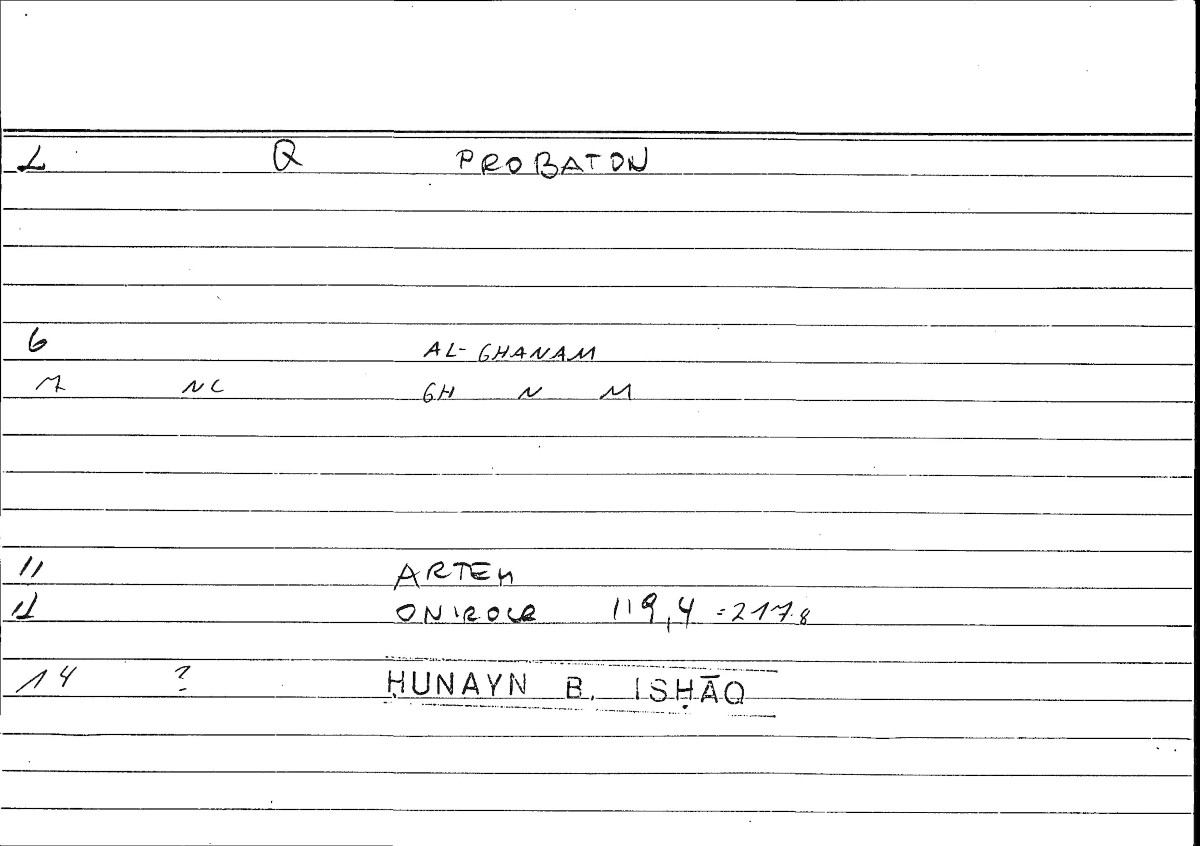 1 Q PROBATON
6 AL-GHANAM
7 NC GH N M
11 ARTEM
12 ONIROCR 119,4 =217.8
14 ? ḤUNAYN B. ISḤĀQ